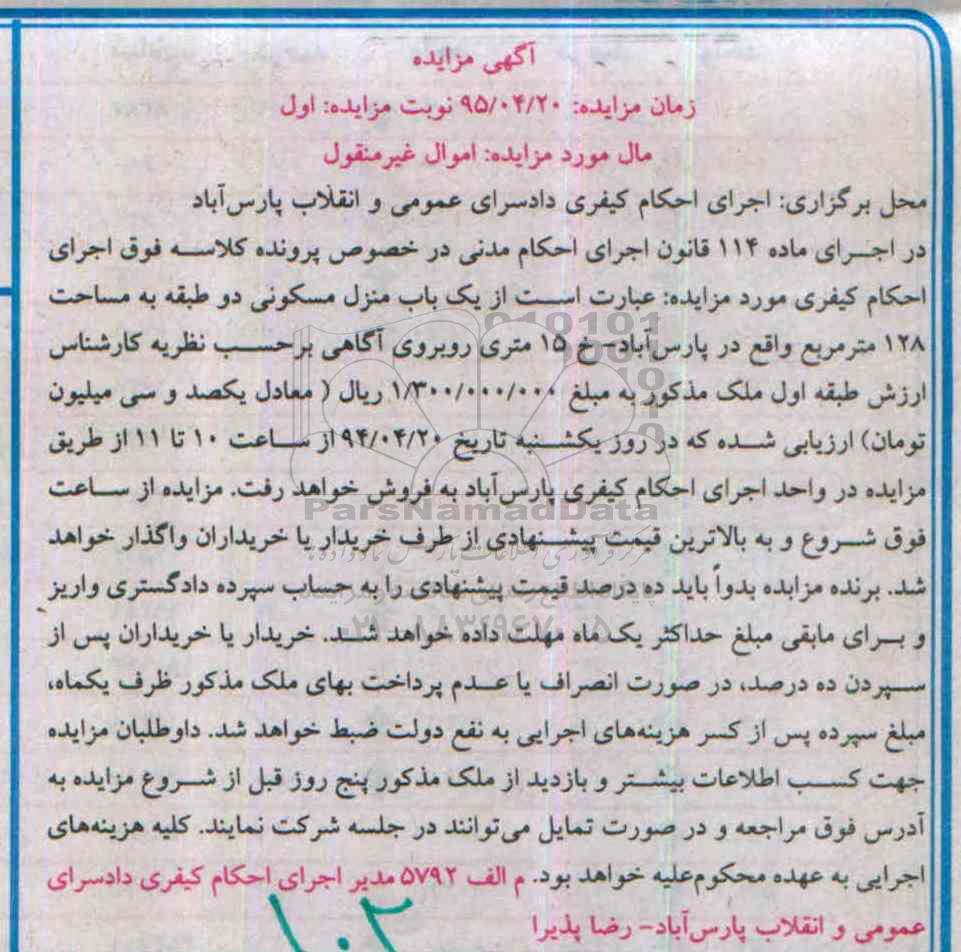 آگهی مزایده
زمان مزایده: ۹۵/۰۴/۲۰ نوبت مزایده: اول
مال مورد مزایده: اموال غیرمنقول
محل برگزاری: اجرای احکام کیفری دادسرای عمومی و انقلاب پارس‌آباد
در اجرای ماده ۱۱۴ قانون اجرای احکام مدنی در خصوص پرونده کلاسه فوق اجرای
احکام کیفری مورد مزایده: عبارت است از یک باب منزل مسکونی دو طبقه به مساحت
۱۲۸ مترمربع واقع در پارس‌آباد- خ ۱۵ متری روبروی آگاهی برحسب نظریه کارشناس
ارزش طبقه اول ملک مذکور به مبلغ ۱/۳۰۰/۰۰۰/۰۰۰ ریال ( معادل یکصد و سی میلیون
تومان) ارزیابی شده که در روز یکشنبه تاریخ ۹۴/۰۴/۲۰ از ساعت ۱۰ تا ۱۱ از طریق
مزایده در واحد اجرای احکام کیفری پارس‌آباد به فروش خواهد رفت. مزایده از ساعت
ParsNamadData
فوق شروع و به بالاترین قیمت پیشنهادی از طرف خریدار یا خریداران واگذار خواهد
شد. برنده مزابده بدواً باید ده درصد قیمت پیشنهادی را به حساب سپرده دادگستری واریز
و برای مابقی مبلغ حداکثر یک ماه مهلت داده خواهد شد. خریدار یا خریداران پس از
سپردن ده درصد، در صورت انصراف یا عدم پرداخت بهای ملک مذکور ظرف یکماه،
مبلغ سپرده پس از کسر هزینه‌های اجرایی به نفع دولت ضبط خواهد شد. داوطلبان مزایده
جهت کسب اطلاعات بیشتر و بازدید از ملک مذکور پنج روز قبل از شروع مزایده به
آدرس فوق مراجعه و در صورت تمایل می‌توانند در جلسه شرکت نمایند. کلیه هزینه‌های
اجرایی به عهده محکوم‌علیه خواهد بود. م الف ۵۷۹۲ مدیر اجرای احکام کیفری دادسرای
عمومی و انقلاب پارس‌آباد- رضا پذیرا